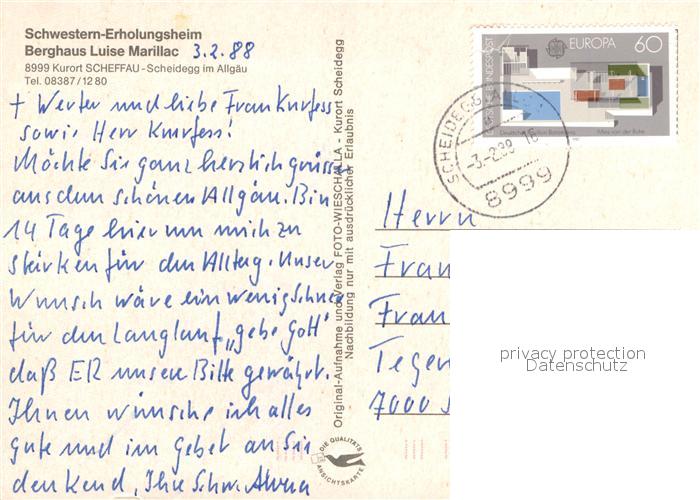 Schwestern-Erholungsheim
Berghaus Luise Marillac 3.2.88
8999 Kurort SCHEFFAU - Scheidegg im Allgäu
Tel. 08387/1280
+ Werter und liebe Frau Knirfess
sowie Herr Knirfess!
Möchte Sie ganz herzlich grüssen
aus dem schönen Allgäu. Bin
14 Tage hier um mich zu
stärken für den Alltag. Unser
Wunsch wäre ein wenig Schnee
für den Langlauf, „gebe Gott"
daß ER unsere Bitte gewährt.
Ihnen wünsche ich alles
gute und im Gebet an Sie
denkend, Ihre Schw.
Original-Aufnahme und Verlag FOTO-WIESCHALLA - Kurort Scheidegg
Nachbildung nur mit ausdrücklicher Erlaubnis
DIE QUALITÄTS
ANSICHTSKARTE
EUROPA 60
Deutscher Pavillon Barcelona
Mies van der Rohe
SCHEIDEGG
-3.-2.88 16
8999
Herrn
Fran
Fran
Tegen
7000 S
privacy protection
Datenschutz